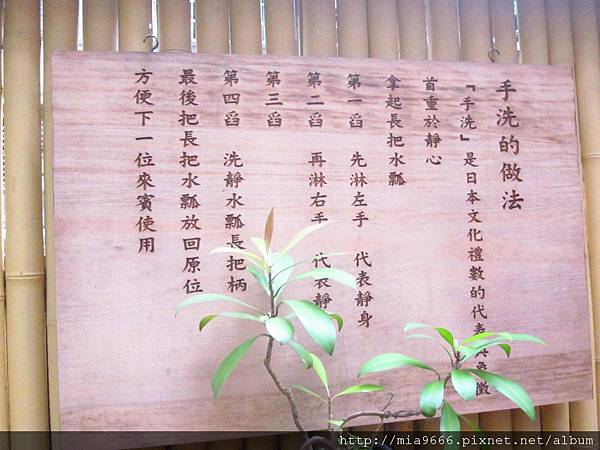 手洗的做法
『手洗』是日本文化禮數的代表與象徵
首重於靜心
拿起長把水瓢
第一舀 先淋左手 代表靜身
第二舀 再淋右手 代表靜
第三舀
第四舀 洗靜水瓢長把柄
最後把長把水瓢放回原位
方便下一位來賓使用
http://mia9666.pixnet.net/album